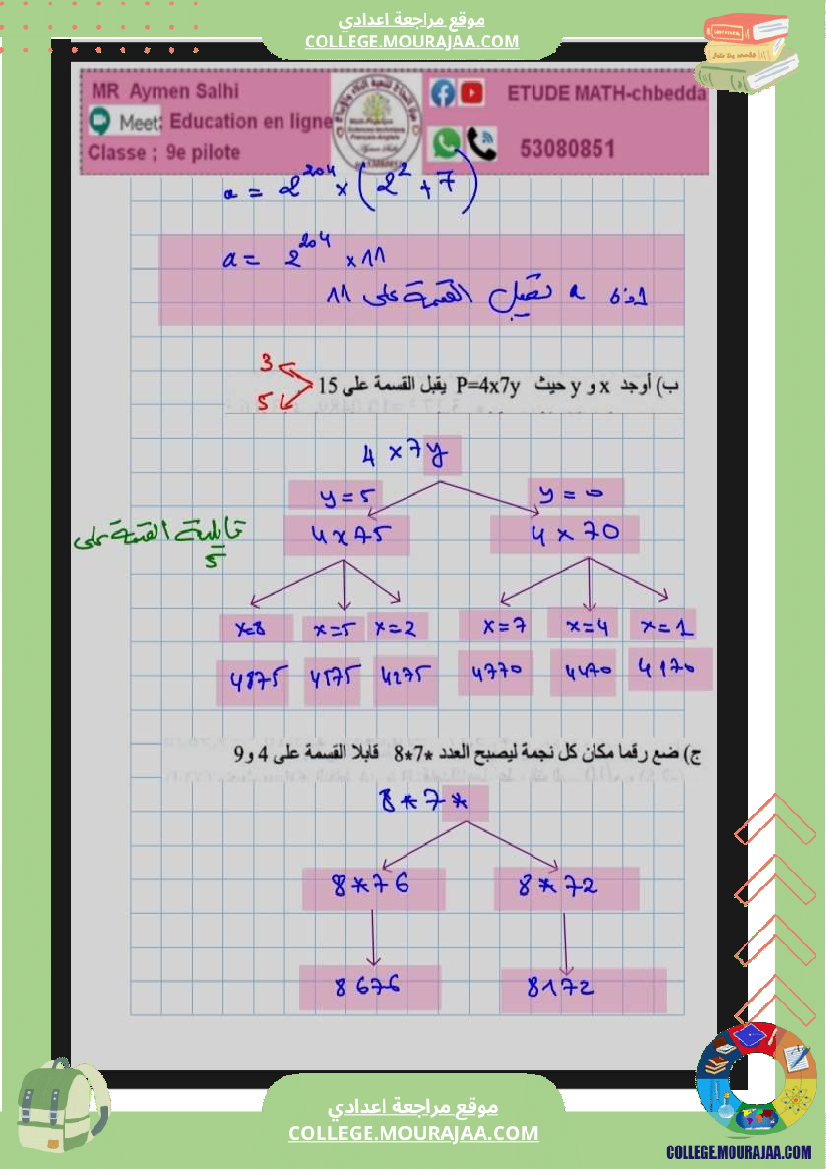 موقع مراجعة اعدادي
COLLEGE.MOURAJAA.COM
MR Aymen Salhi
Meet: Education en ligne
Classe ; 9e pilote
ETUDE MATH-chbedda
53080851
a = 2^204 × (2^2 + 7)
a = 2^204 × 11
إذن a تقبل القسمة على 11
ب) أوجد x و y حيث P=4x7y يقبل القسمة على 15
3
5
4 x 7 y
y = 5 y = 0
قابلية القسمة على 5
4 x 75 4 x 70
x=8 x=5 x=2 x=7 x=4 x=1
4875 4575 4275 4770 4470 4170
ج) ضع رقما مكان كل نجمة ليصبح العدد 8*7* قابلا القسمة على 4 و 9
8 * 7 *
8 * 76 8 * 72
8676 8172
موقع مراجعة اعدادي
COLLEGE.MOURAJAA.COM
COLLEGE.MOURAJAA.COM